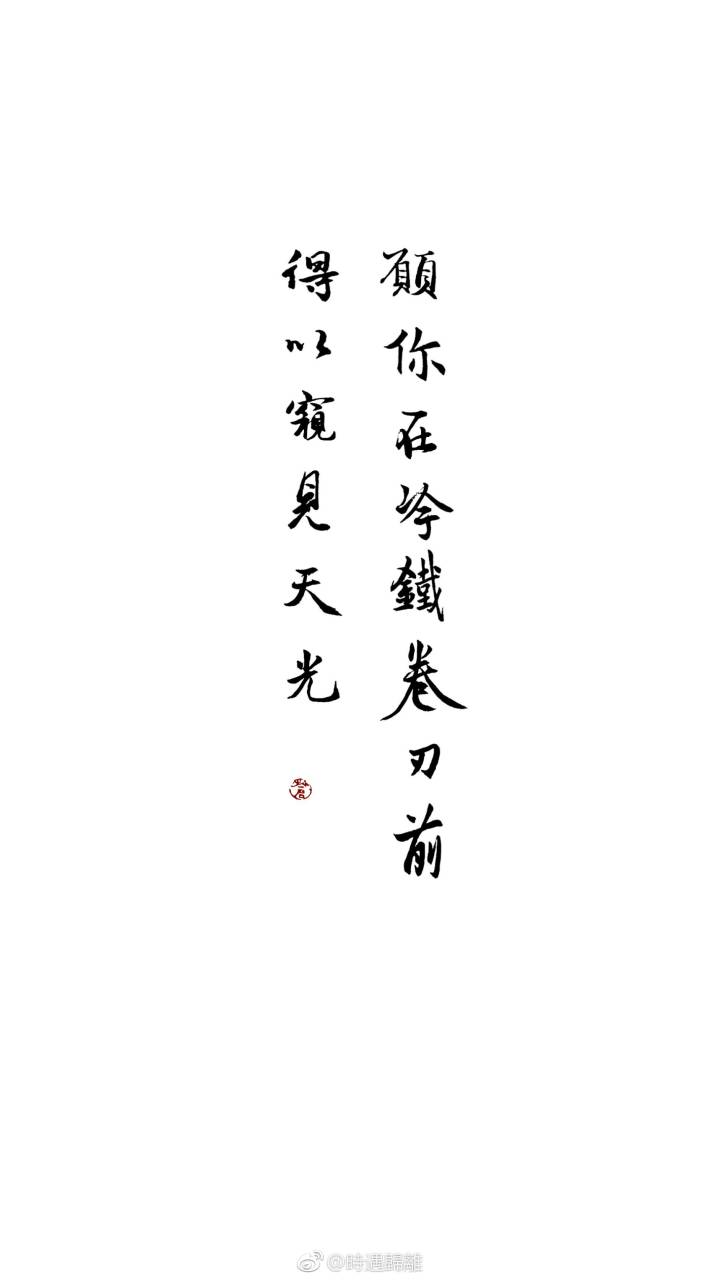 願你在冷鐵卷刃前
得以窺見天光
@時遇歸離